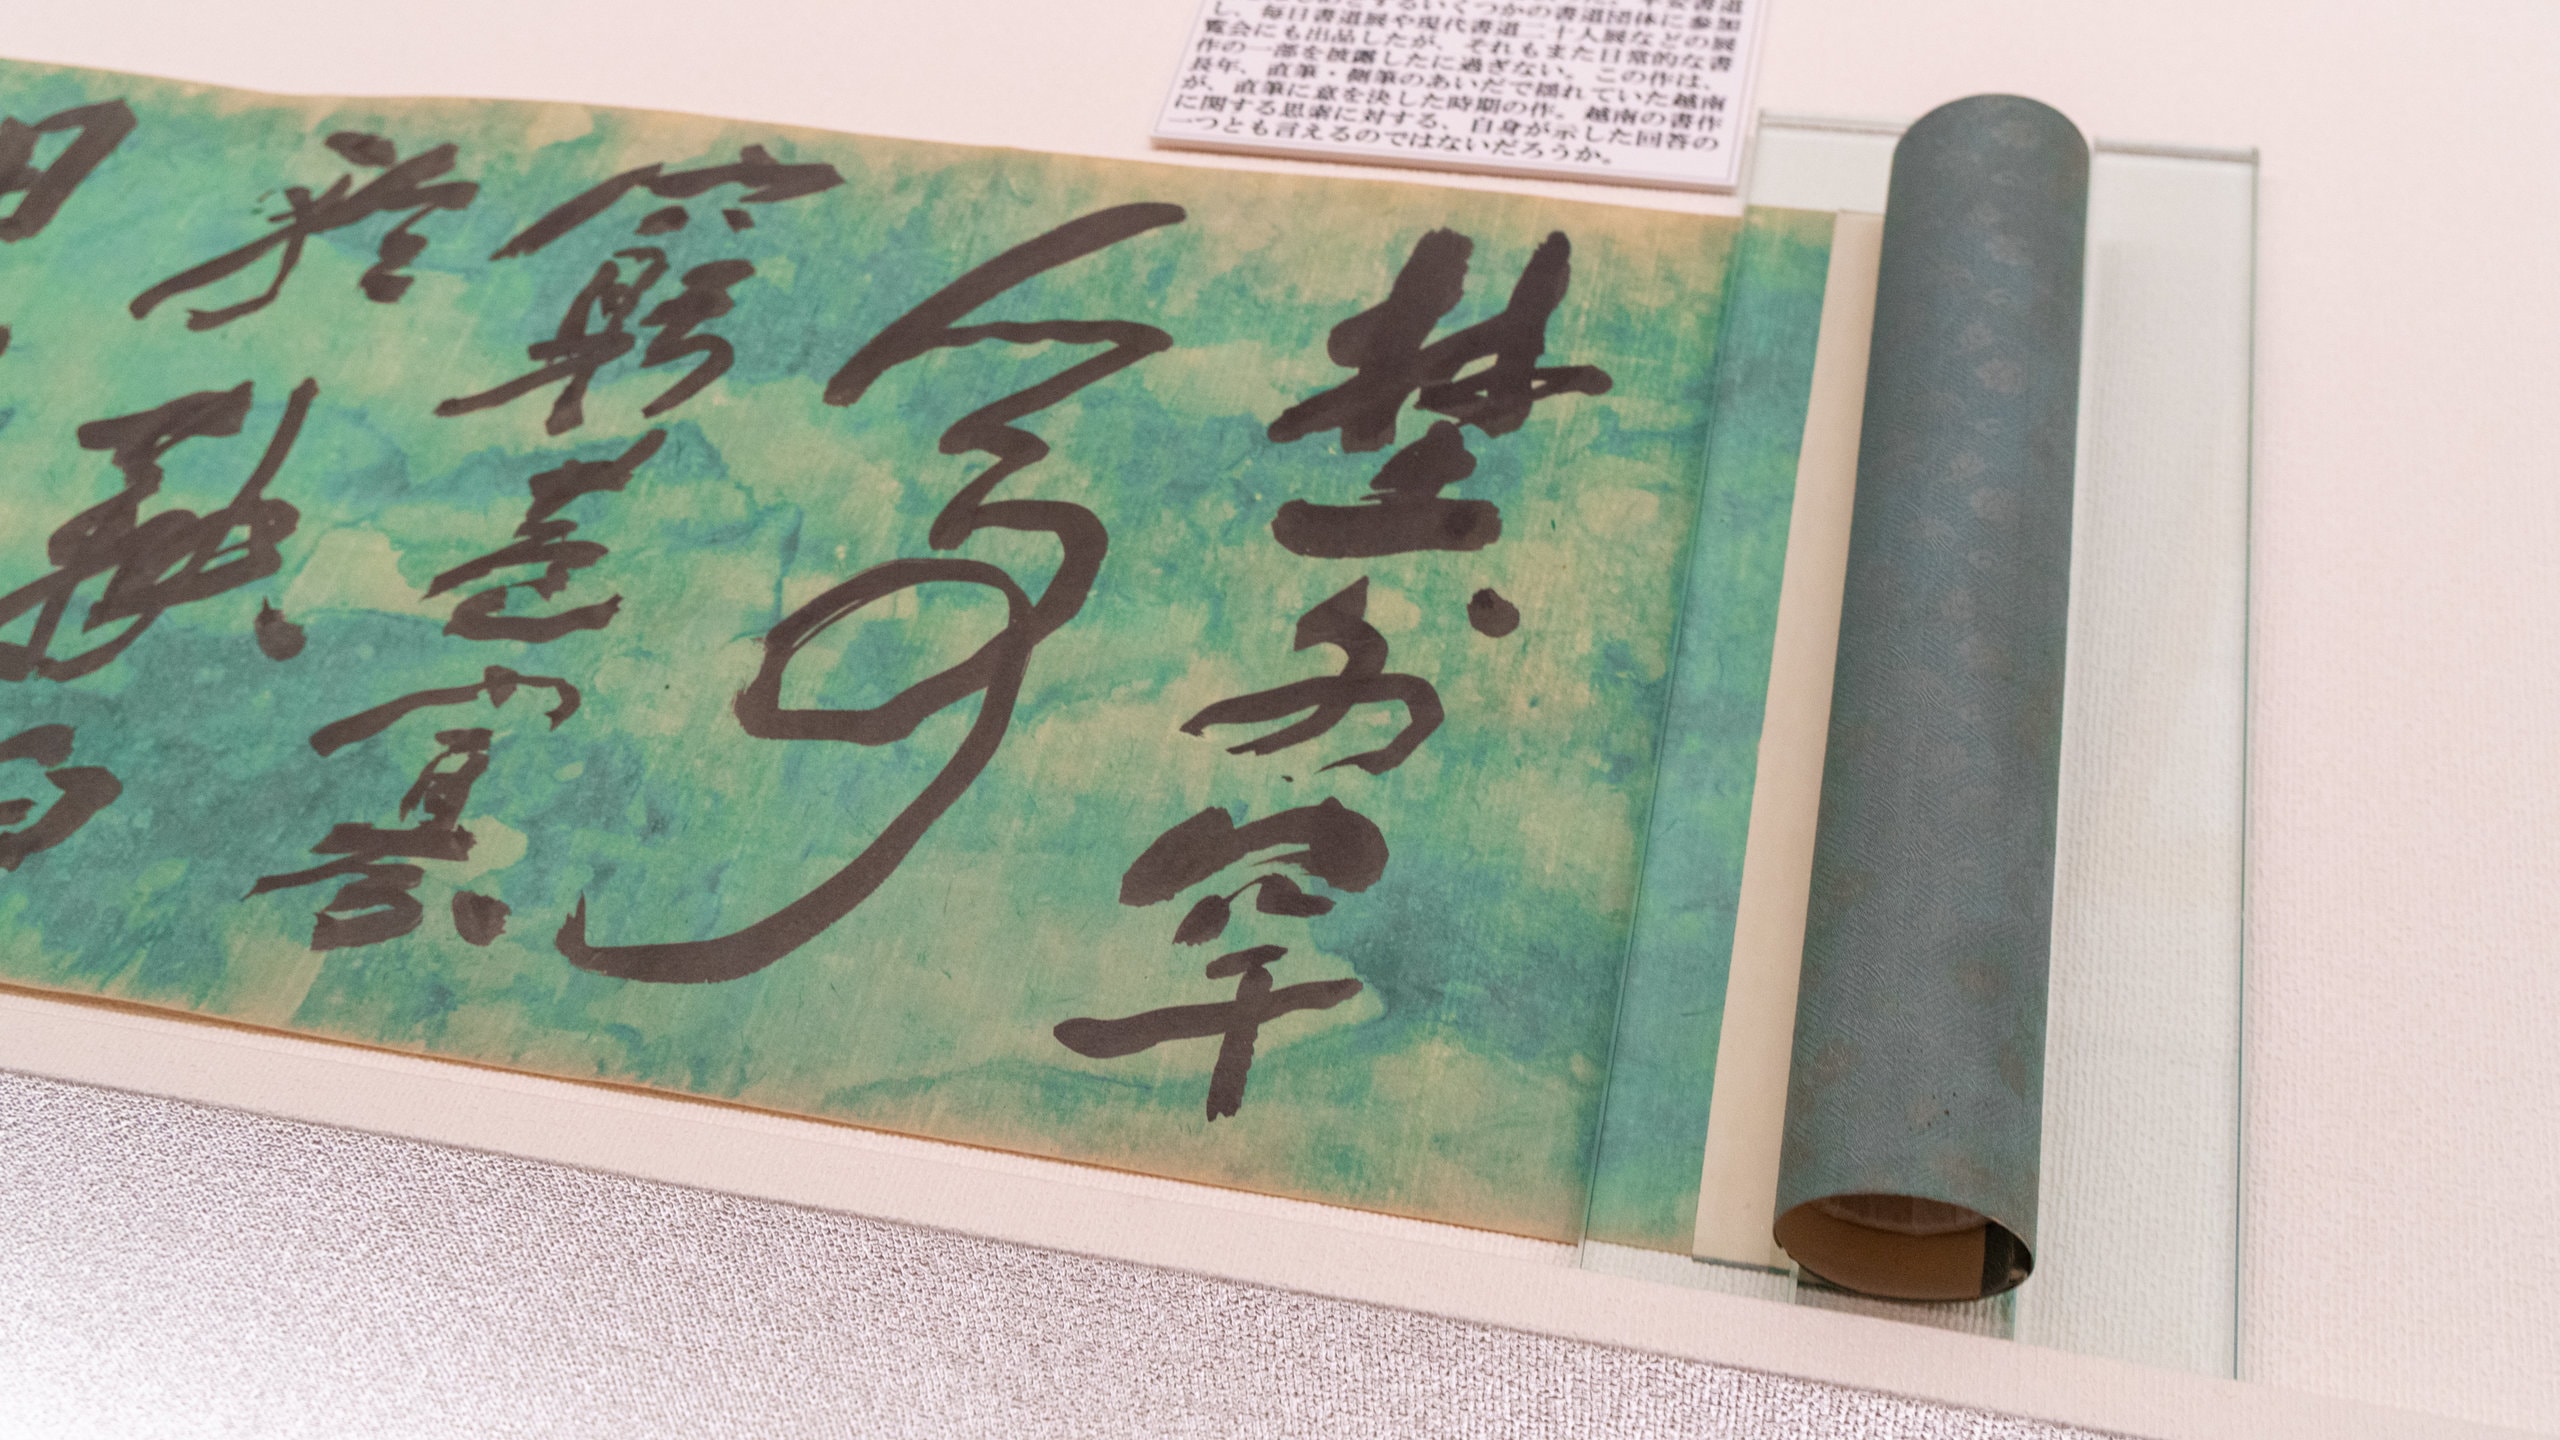 埜外罕
人事
窮巷寡
輪鞅白
日
とするいくつかの書道団体に参加
し、毎日書道展や現代書道二十人展などの展
覧会にも出品したが、それもまた日常的な書
作の一部を披露したに過ぎない。この作は、
長年、直筆・側筆のあいだで揺れていた越南
が、直筆に意を決した時期の作。越南の書作
に関する思索に対する、自身が示した回答の
一つとも言えるのではないだろうか。